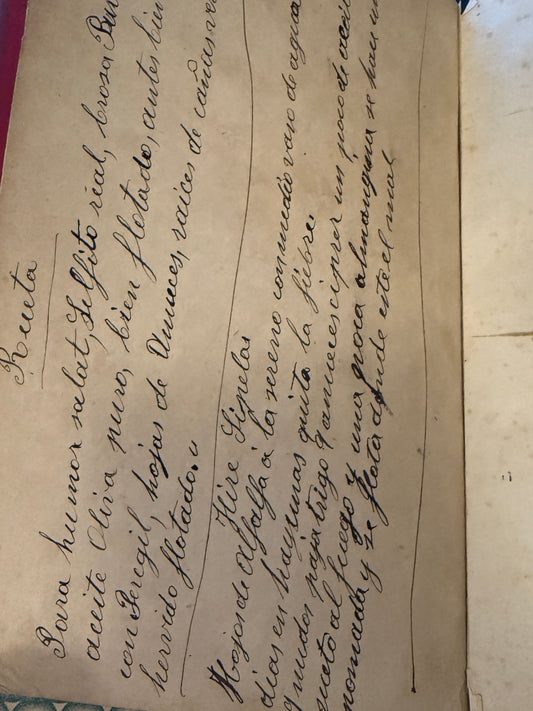 Receta
Para humor salat, Selfito real, brosa
aceite Oliva puro, bien flotado, antes
con Peregil, hojas de Dmueces, raices de cañas
hervido flotado.
Hire Sipelas
Hojas de Alfalfa á la sereno con medio vaso de agua
dias en hayunas quita la fiebre.
nudos paja trigo
al fuego y una poca almangina se hace
nomada y se flota donde este el mal